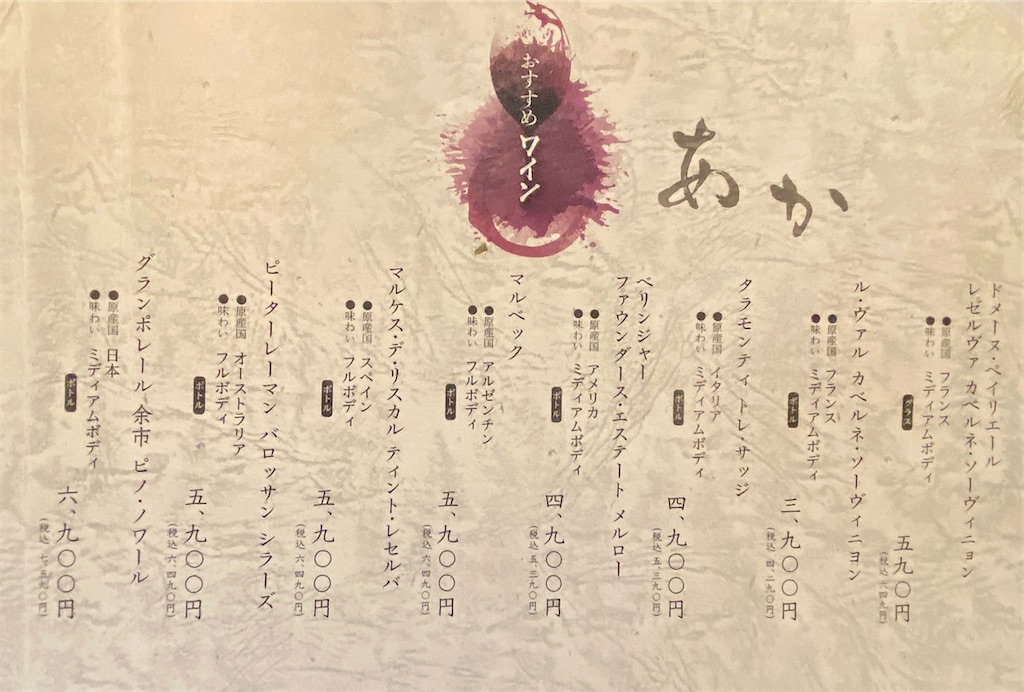 おすすめ ワイン
あか
ドメーヌ・ペイリエール
レゼルヴァ カベルネ・ソーヴィニョン
●原産国 フランス
●味わい ミディアムボディ
グラス 五九〇円
（税込 六四九円）
ル・ヴァル カベルネ・ソーヴィニヨン
●原産国 フランス
●味わい ミディアムボディ
ボトル 三、九〇〇円
（税込 四、二九〇円）
タラモンティ トレ・サッジ
●原産国 イタリア
●味わい ミディアムボディ
ボトル 四、九〇〇円
（税込 五、三九〇円）
ベリンジャー
ファウンダース・エステート メルロー
●原産国 アメリカ
●味わい ミディアムボディ
ボトル 四、九〇〇円
（税込 五、三九〇円）
マルベック
●原産国 アルゼンチン
●味わい フルボディ
ボトル 五、九〇〇円
（税込 六、四九〇円）
マルケス・デ・リスカル ティント・レセルバ
●原産国 スペイン
●味わい フルボディ
ボトル 五、九〇〇円
（税込 六、四九〇円）
ピーターレーマン バロッサン シラーズ
●原産国 オーストラリア
●味わい フルボディ
ボトル 五、九〇〇円
（税込 六、四九〇円）
グランポレール 余市 ピノ・ノワール
●原産国 日本
●味わい ミディアムボディ
ボトル 六、九〇〇円
（税込 七、五九〇円）